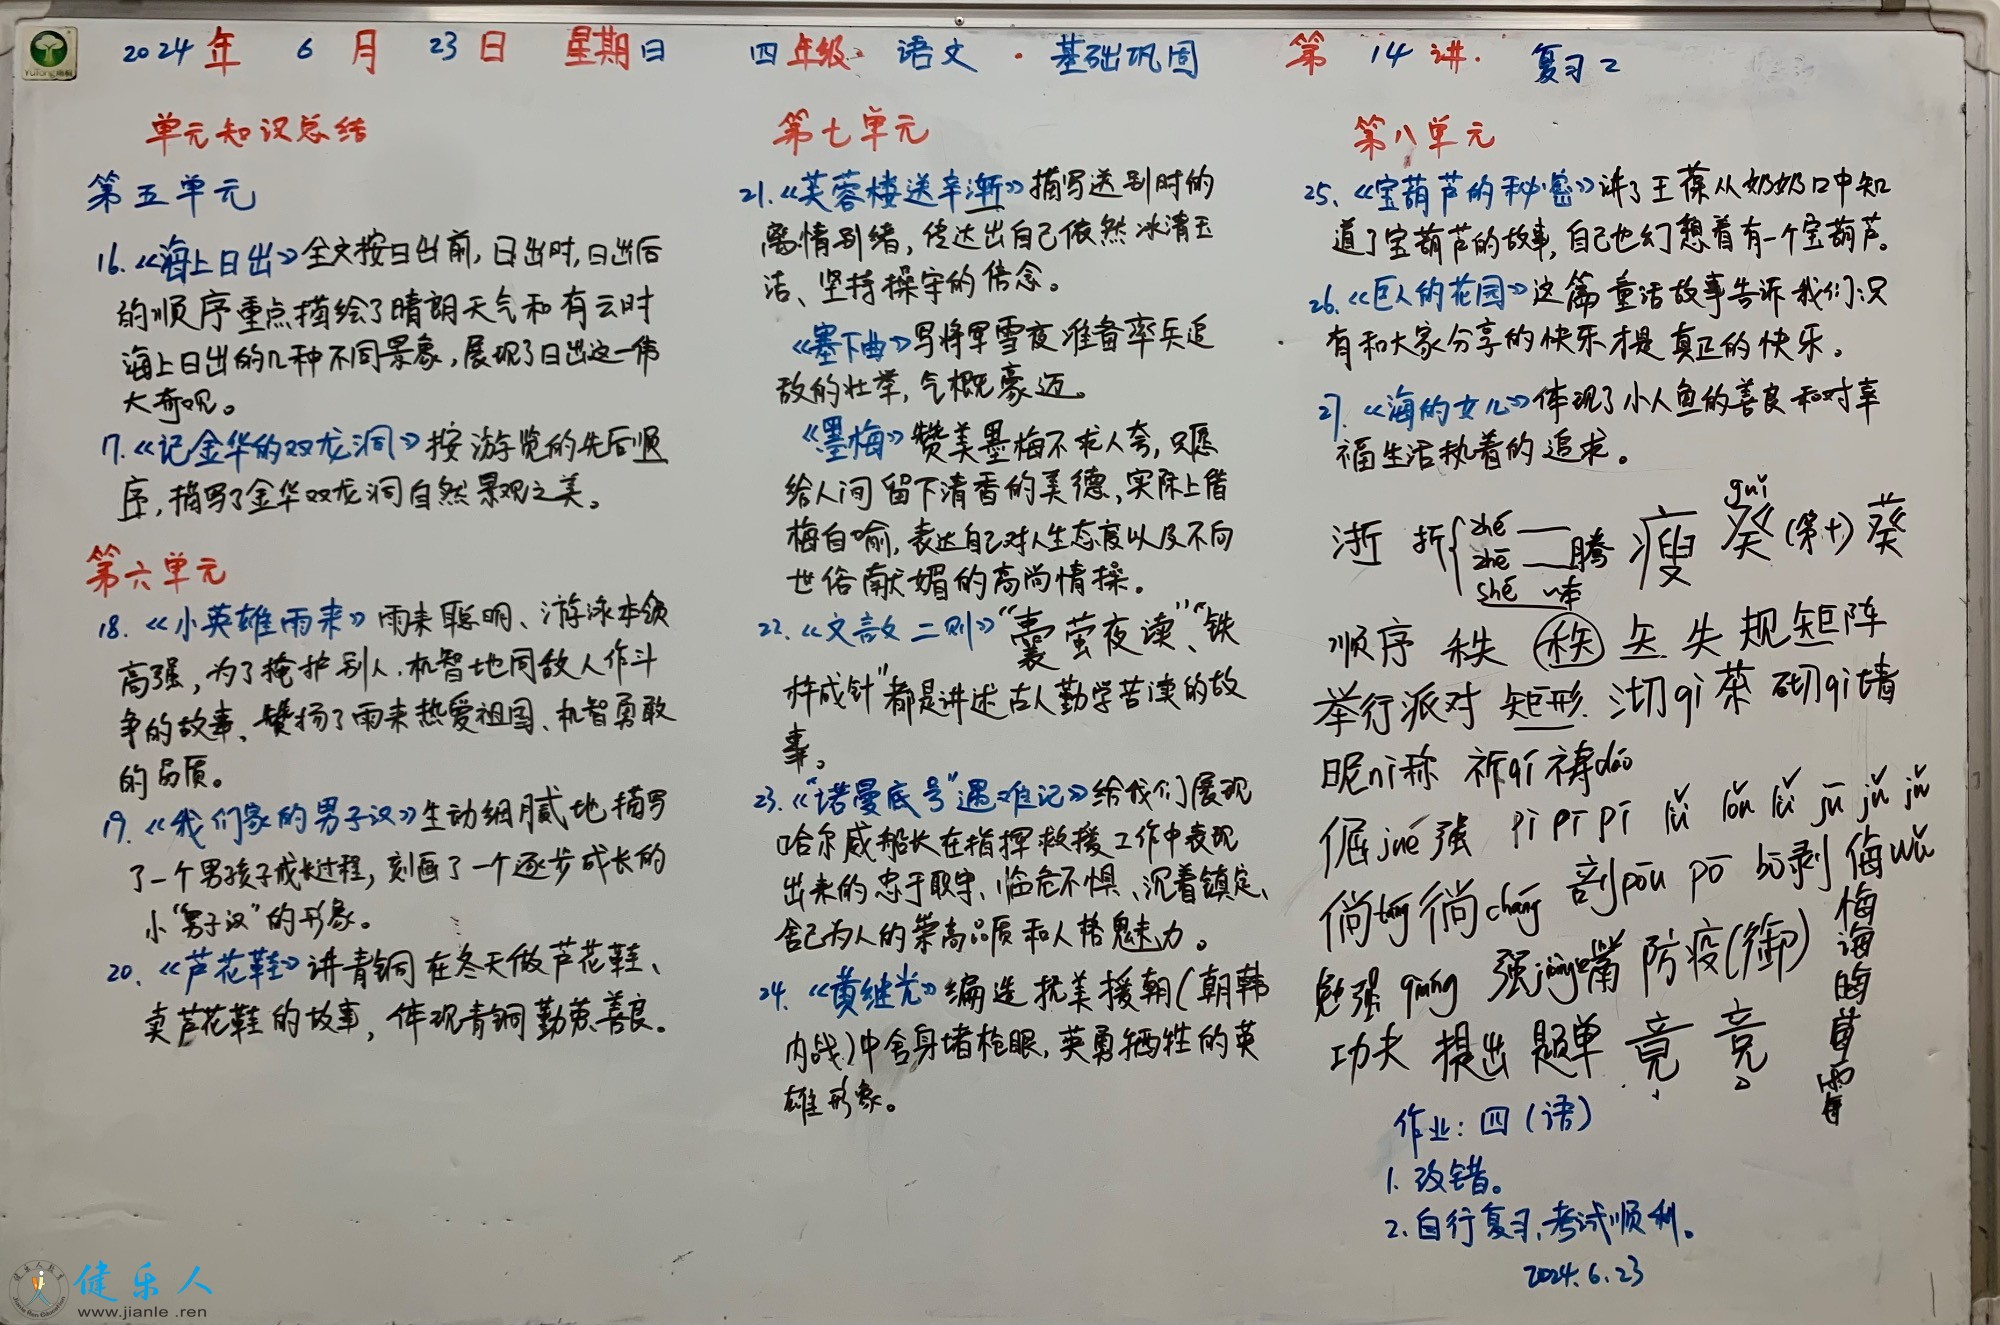 2024年 6月 23日 星期日 四年级·语文·基础巩固 第14讲. 复习2
单元知识总结
第五单元
16.《海上日出》全文按日出前,日出时,日出后
的顺序重点描绘了晴朗天气和有云时
海上日出的几种不同景象,展现了日出这一伟
大奇观。
17.《记金华的双龙洞》按游览的先后顺
序,描写了金华双龙洞自然景观之美。
第六单元
18.《小英雄雨来》雨来聪明、游泳本领
高强,为了掩护别人,机智地同敌人作斗
争的故事、赞扬了雨来热爱祖国、机智勇敢
的品质。
19.《我们家的男子汉》生动细腻地描写
了一个男孩子成长过程,刻画了一个逐步成长的
小"男子汉"的形象。
20.《芦花鞋》讲青铜在冬天做芦花鞋、
卖芦花鞋的故事,体现青铜勤劳善良。
第七单元
21.《芙蓉楼送辛渐》描写送别时的
离情别绪,传达出自己依然冰清玉
洁、坚持操守的信念。
《塞下曲》写将军雪夜准备率兵追
敌的壮举,气概豪迈。
《墨梅》赞美墨梅不求人夸,只愿
给人间留下清香的美德,实际上借
梅自喻,表达自己对人生态度以及不向
世俗献媚的高尚情操。
22.《文言文二则》"囊萤夜读"、"铁
杵成针"都是讲述古人勤学苦读的故
事。
23.《"诺曼底号"遇难记》给我们展现
哈尔威船长在指挥救援工作中表现
出来的忠于职守、临危不惧、沉着镇定、
舍己为人的崇高品质和人格魅力。
24.《黄继光》编造抗美援朝(朝韩
内战)中舍身堵枪眼,英勇牺牲的英
雄形象。
第八单元
25.《宝葫芦的秘密》讲了王葆从奶奶口中知
道了宝葫芦的故事,自己也幻想着有一个宝葫芦。
26.《巨人的花园》这篇童话故事告诉我们:只
有和大家分享的快乐才是真正的快乐。
27.《海的女儿》体现了小人鱼的善良和对幸
福生活执着的追求。
guǐ
浙 折 zhé — 瘦 癸(第十)葵
zhē — 腾
shé 一本
顺序 秩 秩 矢 失 规矩阵
举行派对 矩形. 沏qì茶 砌qì墙
昵nì称 祈qí祷dǎo
倔jué强 pī pǐ pī lǚ lǒu lǚ jū jǔ jǔ
倘tǎng 徜cháng 剖pōu pō bō剥 侮wǔ
勉强qiǎng 强jiàng嘴 防疫(御) 悔
功夫 提出 题单 竟 竞 海
晦
莓
霉
作业:四(语)
1. 改错。
2. 自行复习,考试顺利。
2024.6.23
健乐人
www.jianle.ren